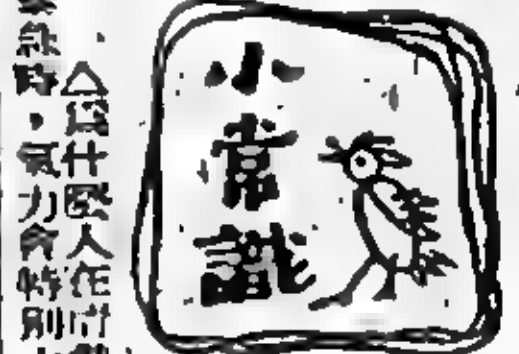 小常識
△爲什麼人在
時,氣力會特別